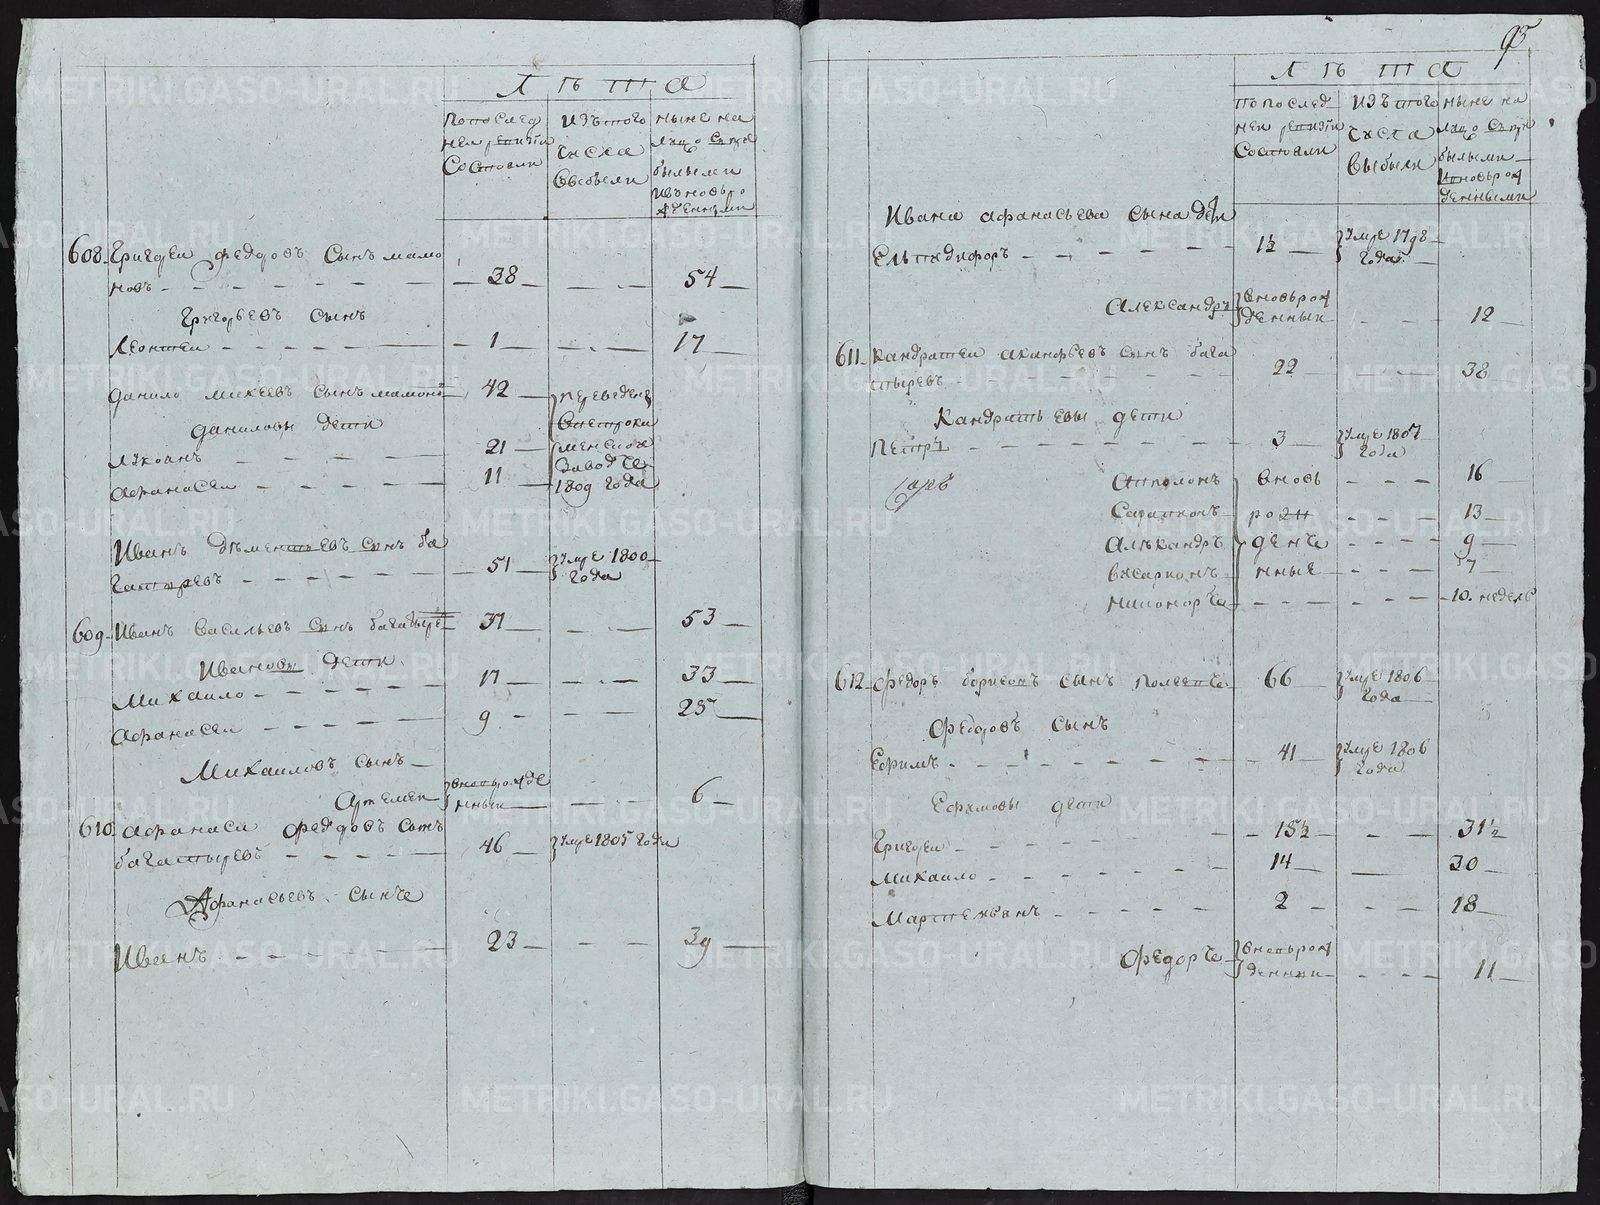 Лѣта
По послед
ней ревизiи
Состояли
изъ того
числа
выбыли
ныне на
лицо съ пре
былыми
и вновь ро
жденными
608. Григорей Федоровъ Сынъ мамо
новъ - - - 38 - - - 54
Григорьевъ Сынъ
Леонтей - - - 1 - - - 17
данило михеевъ сынъ мамоно 42
переведены
даниловы дети
лукоанъ - - - 21
афанасей - - - 11
заводъ
1809 года
Иванъ дементьевъ сынъ ба
гатыревъ - - - 51 умре 1800
года
609. Иванъ васильевъ сынъ багатыре 37 - - - 53
Ивановы дети
Михаило - - - 17 - - - 33
Афанасей - - - 9 - - - 25
Михаиловъ сынъ
Артемей вновьрожде
нный - - - 6
610. Афанасей Федоровъ Сынъ
багатыревъ - - - 46 умре 1805 года
Афанасьевъ сынъ
Иванъ - - - 23 - - - 39
95
Лѣта
по послед
ней ревизiи
Состояли
изъ того
числа
выбыли
ныне на
лицо съ пре
былыми
и вновьрож
денными
Ивана афанасьева сына дети
Елпидифоръ - - - 1½ умре 1798
года
Александръ вновьрож
денный - - - 12
611. кандратей акинфьевъ сынъ бага
тыревъ - - - 22 - - - 38
Кандратьевы дети
Петръ - - - 3 умре 1807
года
Аполонъ вновь - - - 16
Сарапионъ ро - - - 13
Александръ денъ - - - 9
висарионъ нные - - - 7
никоноръ - - - 10. недель
612. Федоръ борисовъ сынъ 66 умре 1806
года
Федоровъ сынъ
Ефимъ - - - 41 умре 1806
года
Ефимовы дети
Григорей - - - 15½ - - - 31½
михаило - - - 14 - - - 30
Мартемъянъ - - - 2 - - - 18
Федоръ вновьрож
денный - - - 11
METRIKI.GASO-URAL.RU